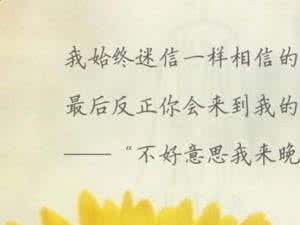 我始终迷信一样相信的
最后反正你会来到我的
——“不好意思我来晚